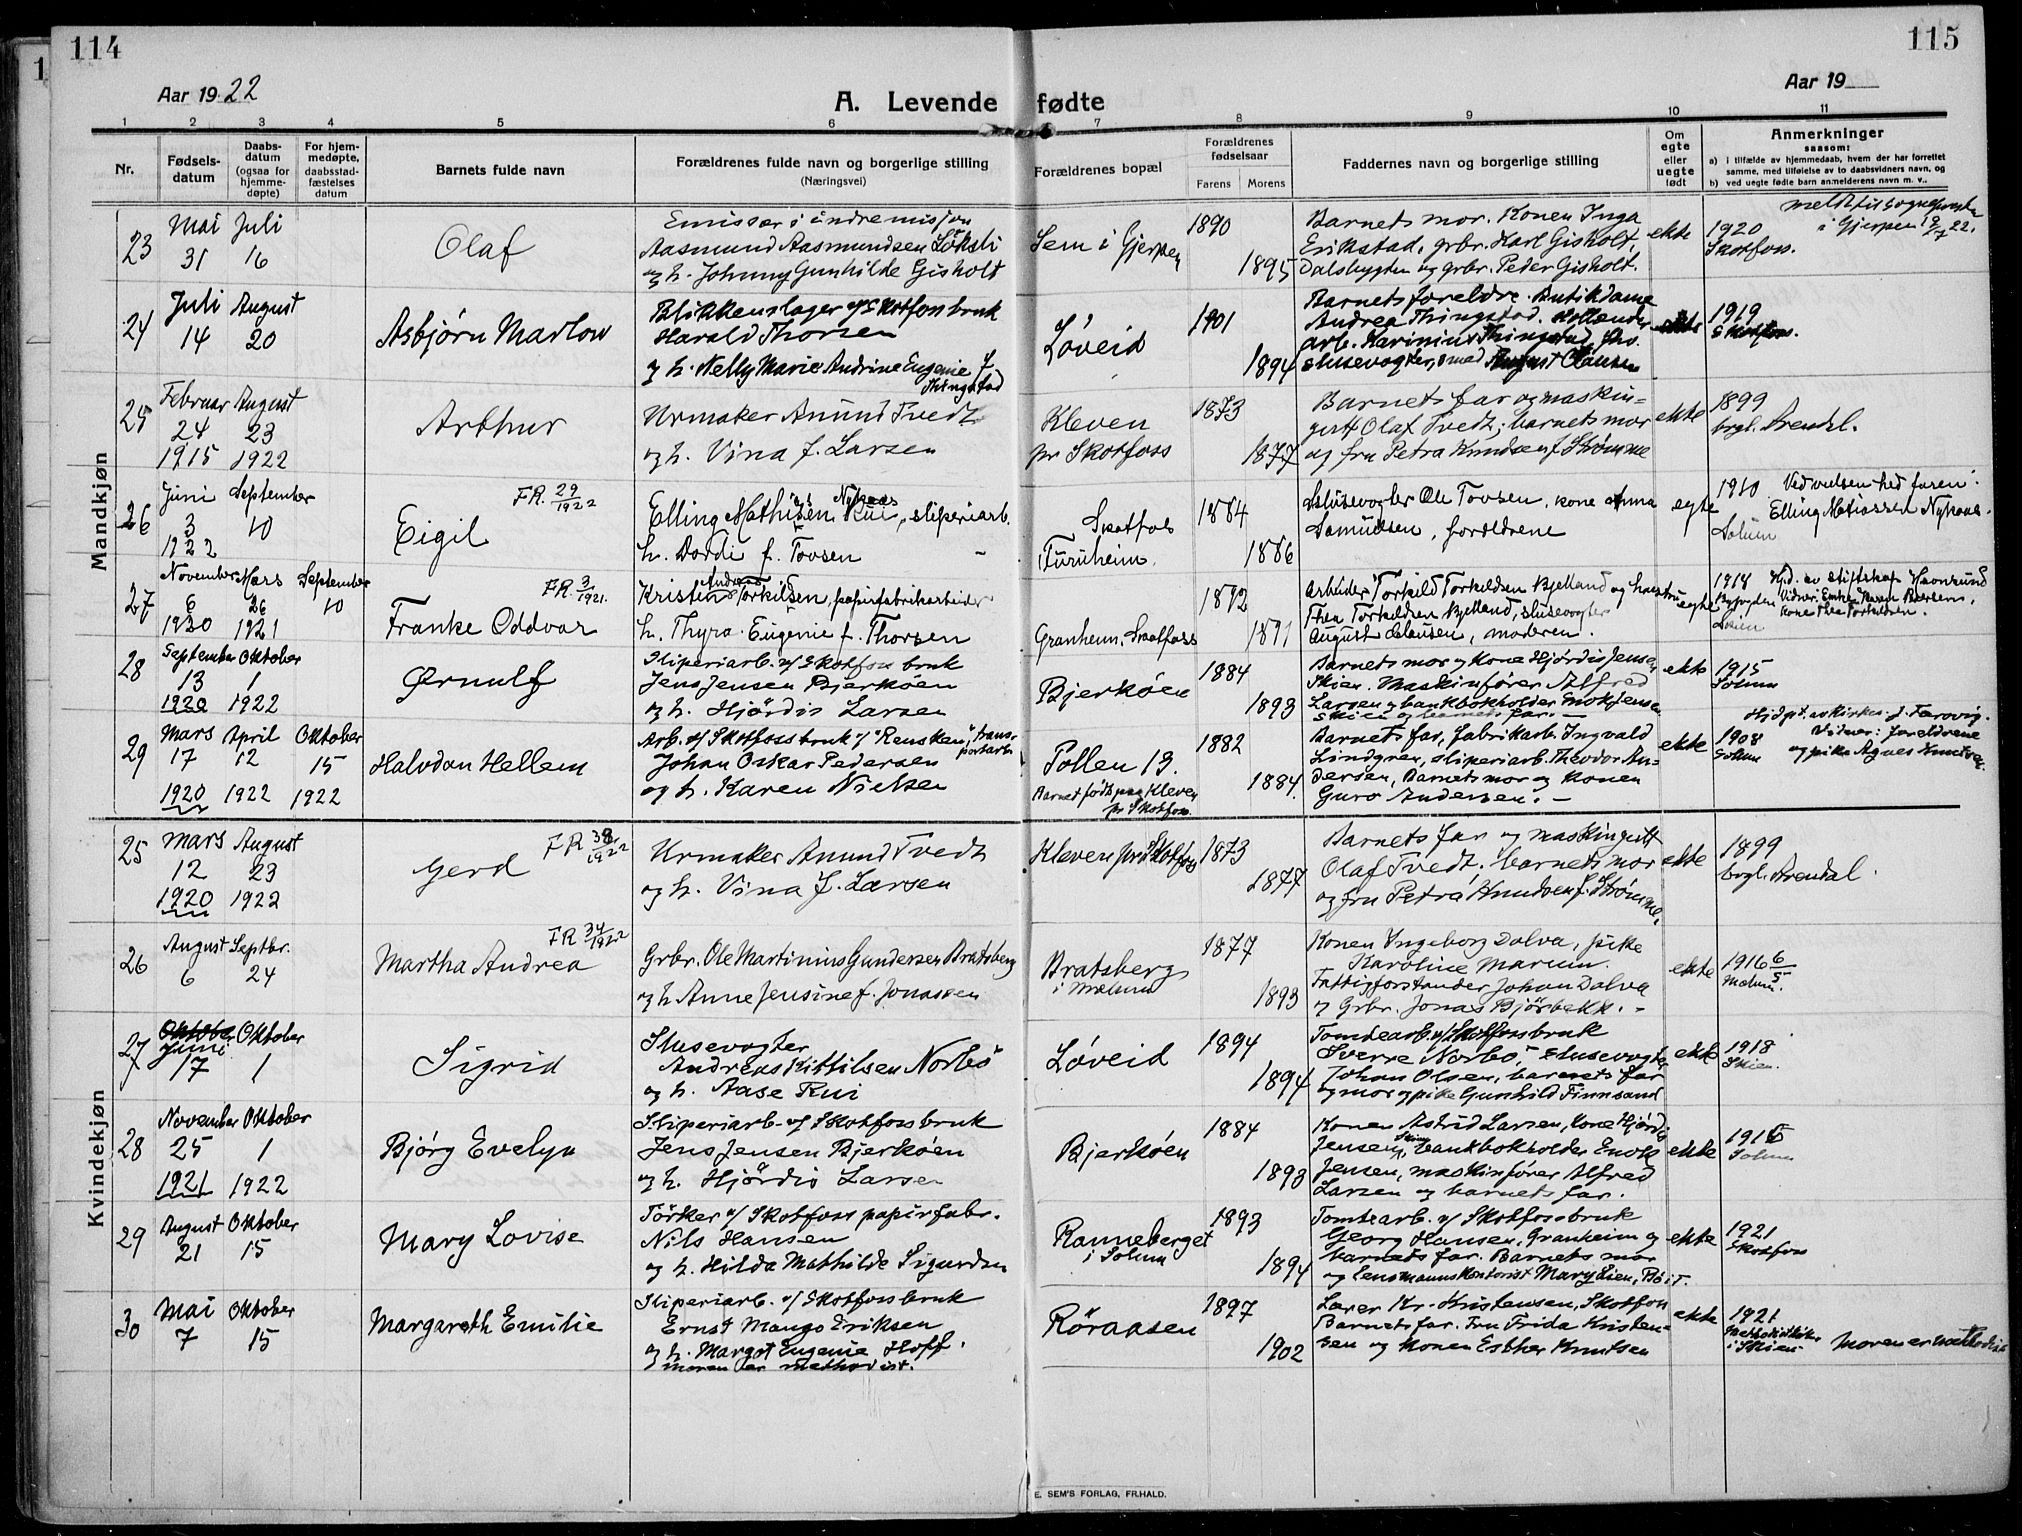 114
115
Aar 1922
Aar 19
A. Levende fødte
1 2 3 4 5 6 7 8 9 10 11
Nr.
Fødselsdatum
Daabsdatum (ogsaa for hjemmedøpte)
For hjemmedøpte, daabsstadfæstelses datum
Barnets fulde navn
Forældrenes fulde navn og borgerlige stilling (Næringsvei)
Forældrenes bopæl
Forældrenes fødselsaar
Farens Morens
Faddernes navn og borgerlige stilling
Om egte eller uegte født
Anmerkninger saasom:
a) i tilfælde av hjemmedaab, hvem der har forrettet samme, med tilføielse av to daabsvidners navn, og
b) ved uegte fødte barn anmelderens navn m. v..
Mandkjøn
23 Mai 31 Juli 16
Olaf
Emissær i indremisjon
Aasmund Aasmundsen Löksli
og h. Johnny Gunhilde Gisholt
Sem i Gjerpen
1890
1895
Barnets mor. Konen Inga
Erikstad, grbr. Karl Gisholt,
Dalsbygten og grbr. Peder Gisholt.
ekte
1920
Skotfoss.
meldt til sognepresten
i Gjerpen 19/7 22.
24 Juli 14 August 20
Asbjørn Marlow
Blikkenslager v/ Skotfoss bruk
Harald Thorsen
og h. Nelly Marie Andrine Eugenie f.
Thingstad
Løveid
1901
1894
Barnets foreldre. Butikdame
Andrea Thingstad. Hollender
arb. Karinius Thingstad, fhv.
slusevogter, smed August Clausen
ekte
1919
Skotfoss.
25 Februar 24 1915 August 23 1922
Arthur
Urmaker Anund Tvedt
og h. Vina f. Larsen
Kleven
pr Skotfoss
1873
1877
Barnets far og maskin=
gutt Olaf Tvedt; barnets mor
og fru Petra Knudsen f. Strømme
ekte
1899
brgl. Arendal.
26 Juni 3 1922 September 10
FR. 29/1922
Eigil
Elling Mathisen Rui, sliperiarb.
Nykaas
h. Dordi f. Tovsen
Skotfos
Furuheim.
1884
1886
Slusevogter Ole Tovsen, kone Anna
Samuelsen, foreldrene
egte
1910
Solum
Ved vielsen hed faren:
Elling Matiassen Nykaas.
27 November 6 1920 Mars 26 1921 September 10
FR. 3/1921.
Franke Oddvar
Andreas
Kristen Torkilsen, papirfabrikarbeider
h. Thyra Eugenie f. Thorsen
Granheim, Skotfoss
1892
1891
Arbeider Torkild Torkildsen Bjelland og hustru
Thea Torkildsen Bjelland, slusevogter
August Clausen, moderen.
egte
1914
Skien
28 September 13 1920 Oktober 1 1922
Ørnulf
Sliperiarb. v/ Skotfoss bruk
Jens Jensen Bjerköen
og h. Hjördis Larsen
Bjerköen
1884
1893
Barnets mor og kone Hjørdis Jensen
Skien. Maskinfører Alfred
Larsen og bankbokholder Enok Jensen
Skien og barnets far. —
ekte
1915
Solum
29 Mars 17 1920 April 12 1922 Oktober 15 1922
Halvdan Hellem
Arb. v/ Skotfoss bruk v/ "Rensken", trans-
portarb.
Johan Oskar Pedersen
og h. Karen Nielsen
Pollen 13.
Barnet født paa Kleven
pr Skotfoss.
1882
1884.
Barnets far, fabrikarb. Ingvald
Lindgren, sliperiarb. Theodor An-
dersen, Barnets mor og konen
Guro Andersen. —
ekte
1908
Solum
Vidner: foreldrene
og pike Agnes
Kvindekjøn
25 Mars 12 1920 August 23 1922
FR 38/1922
Gerd
Urmaker Anund Tvedt
og h. Vina f. Larsen
Kleven pr Skotfoss
1873
1877
Barnets far og maskingutt
Olaf Tvedt, barnets mor
og fru Petra Knudsen f. Strømme.
ekte
1899
brgl. Arendal.
26 August 6 Septbr. 24
FR 34/1922
Martha Andrea
Grbr. Ole Martinius Gundersen Bratsberg
og h. Anne Jensine f. Jonassen
Bratsberg
i Mælum
1877
1893
Konen Ingeborg Dalva, pike
Karoline Marum.
Fattigforstander Johan Dalva
og Grbr. Jonas Bjørbekk. —
ekte
1916 6/5
Mælum.
27 Oktober Juni 17 Oktober 1
Sigrid
Slusevogter
Andreas Kittilsen Norbö
og h. Aase Rui
Løveid
1894
1894
Tomtearb. v/ Skotfoss bruk
Sverre Norbö, slusevogter
Johan Olsen, barnets far
og mor og pike Gunhild Finnsand
ekte
1918
Skien.
28 November 25 1921 Oktober 1 1922
Bjørg Evelyn
Sliperiarb. v/ Skotfoss bruk
Jens Jensen Bjerköen
og h. Hjördis Larsen
Bjerköen
1884
1893
Konen Astrid Larsen, Kone Hjördis
Jensen, Skien, bankbokholder Enok
Jensen, maskinfører Alfred
Larsen og barnets far.
ekte
1915
Solum
29 August 21 Oktober 15
Mary Lovise
Törker v/ Skotfoss papirfabr.
Nils Hansen
og h. Hilda Mathilde Sigurdsen
Ranneberget
i Solum
1893
1894
Tomtearb. v/ Skotfoss bruk
Georg Hansen, Granheim og
barnets far. Barnets mor
og lensmannskontorist Mary Lien, Bö i T.
ekte
1921
Skotfoss
30 Mai 7 Oktober 15
Margareth Emilie
Sliperiarb. v/ Skotfoss bruk
Ernst Mango Eriksen
og h. Margot Eugenie Hoff.
moren er methodist.
Röraasen
1897
1902
Lærer Kr. Kristensen, Skotfoss
Barnets far. Fru Frida Kristen-
sen og Konen Esther Knutsen
ekte
1921
Methodistkirken
i Skien
Moren er methodist
E. SEM'S FORLAG, FR.HALD.